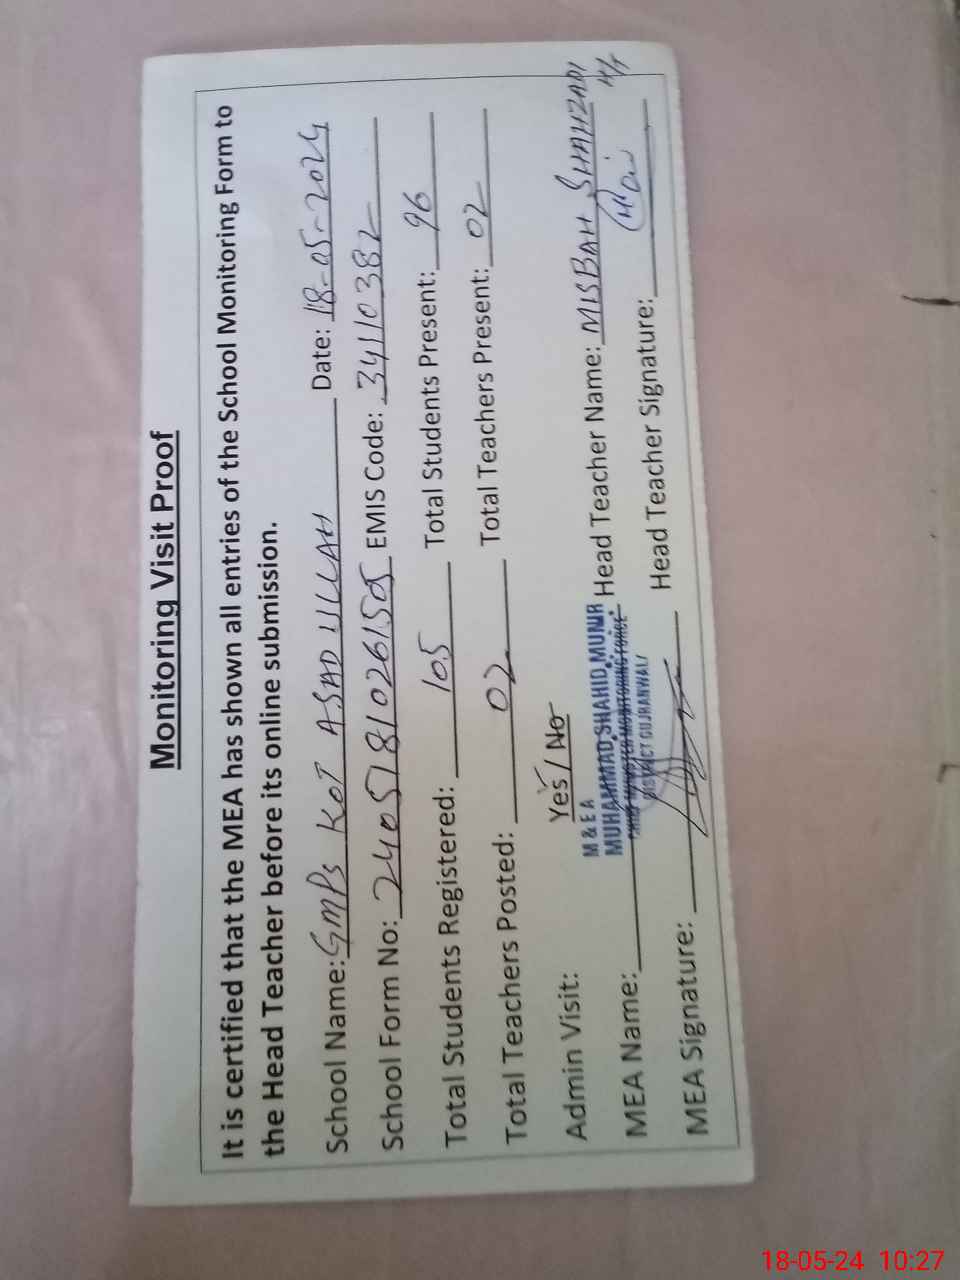 Monitoring Visit Proof
It is certified that the MEA has shown all entries of the School Monitoring Form to
the Head Teacher before its online submission.
School Name: GMPS KOT ASAD ULLAH Date: 18-05-2024
School Form No: 24051810261505 EMIS Code: 34110382
Total Students Registered: 105 Total Students Present: 96
Total Teachers Posted: 02 Total Teachers Present: 02
Admin Visit: Yes / No
M & E A
MEA Name: MUHAMMAD SHAHID MUNIR Head Teacher Name: MISBAH SHAHZADI H/T
CHIEF MINISTER MONITORING FORCE
DISTRICT GUJRANWALA
MEA Signature: Head Teacher Signature:
18-05-24 10:27